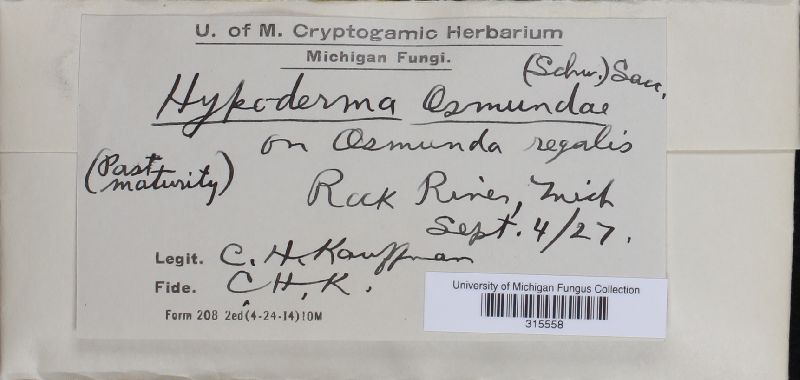 U. of M. Cryptogamic Herbarium
Michigan Fungi.
(Schw.) Sacc.
Hypoderma Osmundae
on Osmunda regalis
(Past maturity)
Rock River, Mich
Sept. 4/27.
Legit. C. H. Kauffman
Fide. C. H. K.
Form 208 2ed(4-24-14)10M
University of Michigan Fungus Collection
315558